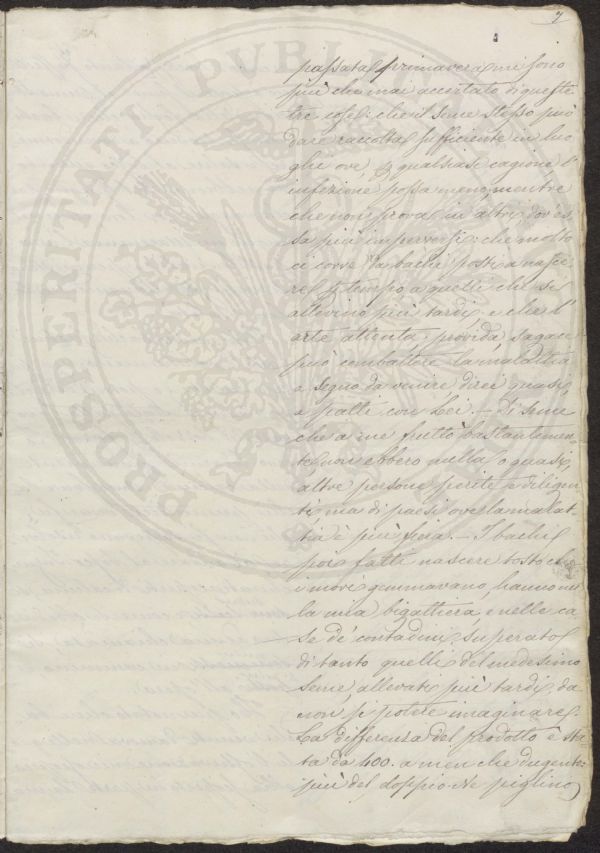 7
passata primavera mi sono
più che mai accertato di queste
tre cose: che il seme stesso può
dare raccolta sufficiente in luo
ghi ove, p qualsiasi cagione l'
infezione possa meno, mentre
che non prova in altri dov'es
sa più imperversi: che molto
ci corre da bachi posti a nasce
re p tempo a quelli che si
allevino più tardi: e che l'
arte attenta, provida sagace
può combattere la malattia
a segno da venire direi quasi,
a patti con Lei. — Di seme
che a me fruttò bastantemen
te non ebbero nulla o quasi,
altre persone perite e diligen
ti ma di paesi ove la malat
tia è più fiera. — I bachi
poi fatti nascere tosto che
i mori gemmavano, hanno nel
la mia bigattiera e nelle ca
se de' contadini, superato
di tanto quelli del medesimo
seme allevati più tardi, da
non si potere imaginare.
La differenza del prodotto è sta
ta da 400. a men che dugento:
più del doppio. Ne piglino
PROSPERITATI PUBLICAE